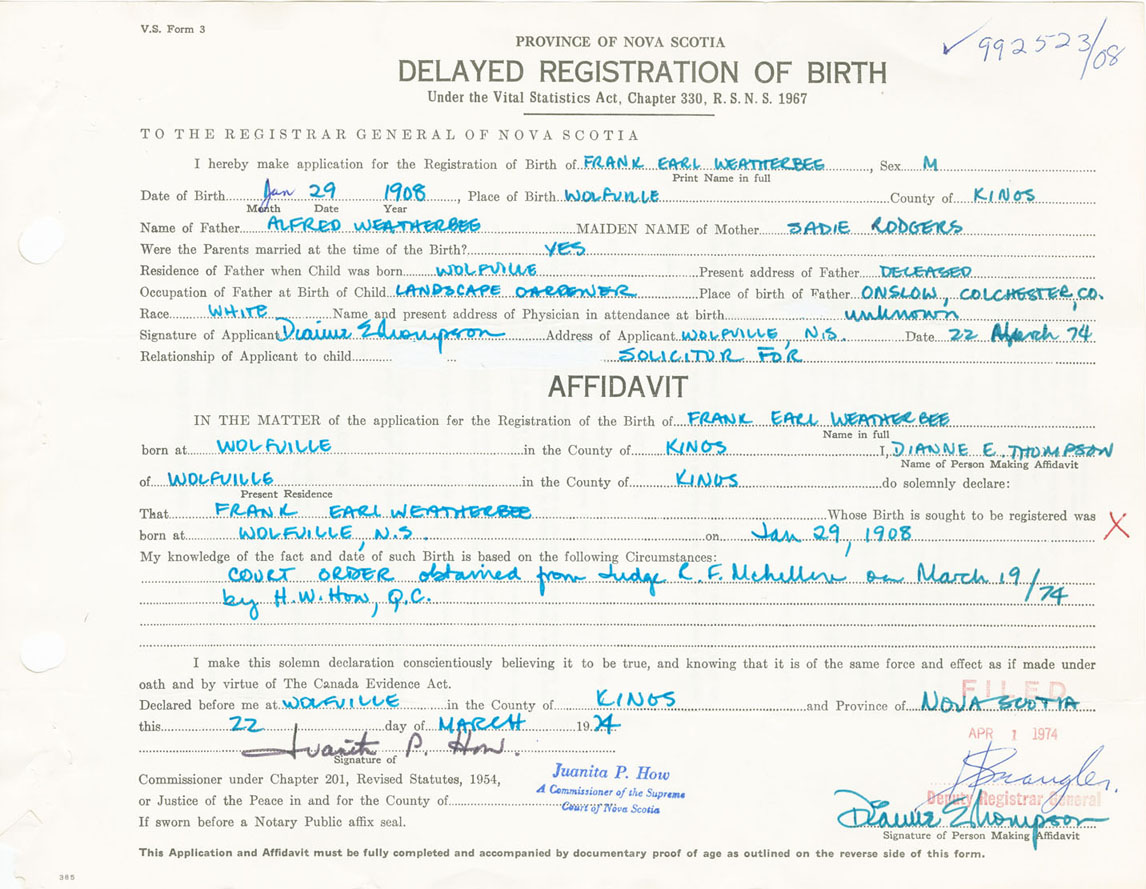 V.S. Form 3
992523/08
PROVINCE OF NOVA SCOTIA
DELAYED REGISTRATION OF BIRTH
Under the Vital Statistics Act, Chapter 330, R. S. N. S. 1967
TO THE REGISTRAR GENERAL OF NOVA SCOTIA
I hereby make application for the Registration of Birth of FRANK EARL WEATHERBEE, Sex M
Print Name in full
Date of Birth Jan 29 1908, Place of Birth WOLFVILLE County of KINGS
Month Date Year
Name of Father ALFRED WEATHERBEE MAIDEN NAME of Mother SADIE RODGERS
Were the Parents married at the time of the Birth? YES
Residence of Father when Child was born WOLFVILLE Present address of Father DECEASED
Occupation of Father at Birth of Child LANDSCAPE GARDENER Place of birth of Father ONSLOW, COLCHESTER, CO.
Race WHITE Name and present address of Physician in attendance at birth unknown
Signature of Applicant Dianne E Thompson Address of Applicant WOLFVILLE, N.S. Date 22 March 74
Relationship of Applicant to child SOLICITOR FOR
AFFIDAVIT
IN THE MATTER of the application for the Registration of the Birth of FRANK EARL WEATHERBEE
Name in full
born at WOLFVILLE in the County of KINGS I, DIANNE E. THOMPSON
Name of Person Making Affidavit
of WOLFVILLE in the County of KINGS do solemnly declare:
Present Residence
That FRANK EARL WEATHERBEE Whose Birth is sought to be registered was
born at WOLFVILLE, N.S. on Jan 29, 1908 X
My knowledge of the fact and date of such Birth is based on the following Circumstances:
COURT ORDER obtained from Judge R. F. McLellan on March 19/74
by H. W. How, Q.C.
I make this solemn declaration conscientiously believing it to be true, and knowing that it is of the same force and effect as if made under
oath and by virtue of The Canada Evidence Act.
FILED
Declared before me at WOLFVILLE in the County of KINGS and Province of NOVA SCOTIA
this 22 day of MARCH 1974
APR 1 1974
Juanita P. How.
Signature of
Commissioner under Chapter 201, Revised Statutes, 1954,
or Justice of the Peace in and for the County of
If sworn before a Notary Public affix seal.
Juanita P. How
A Commissioner of the Supreme
Court of Nova Scotia
Deputy Registrar General
Dianne E Thompson
Signature of Person Making Affidavit
This Application and Affidavit must be fully completed and accompanied by documentary proof of age as outlined on the reverse side of this form.
385